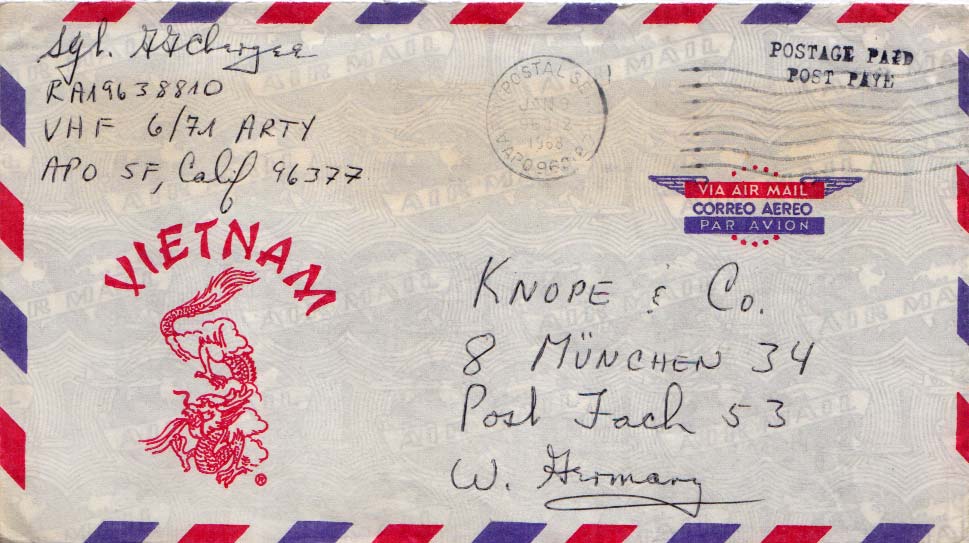 Sgt.
RA19638810
VHF 6/71 ARTY
APO SF, Calif 96377
POSTAL
JAN 9
1968
APO
POSTAGE PAID
POST PAYE
VIA AIR MAIL
CORREO AEREO
PAR AVION
VIETNAM
®
KNOPE & Co.
8 MÜNCHEN 34
Post Fach 53
W. Germany